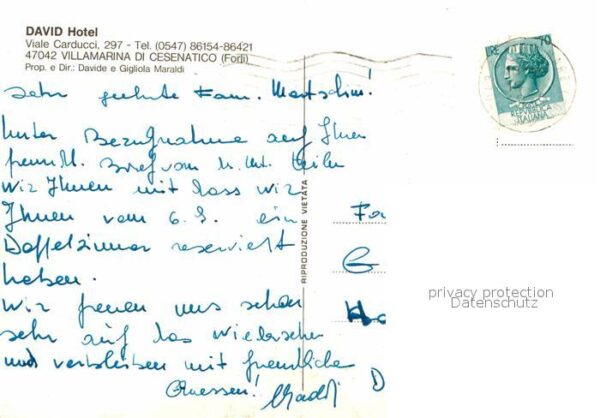 DAVID Hotel
Viale Carducci, 297 - Tel. (0547) 86154-86421
47042 VILLAMARINA DI CESENATICO (Forlì)
Prop. e Dir.: Davide e Gigliola Maraldi
LIRE 70
REPUBBLICA
ITALIANA
Sehr geehrte Fam.
Unter Bezugnahme auf Ihren
freundl. Brief vom u. Mt. teilen
wir Ihnen mit dass wir
Ihnen vom 6.9. ein
Doppelzimmer reserviert
haben.
Wir freuen uns schon
sehr auf das Wiedersehen
und verbleiben mit freundliche
Gruessen! Maraldi
RIPRODUZIONE VIETATA
Fa
G
Ho
D
privacy protection
Datenschutz